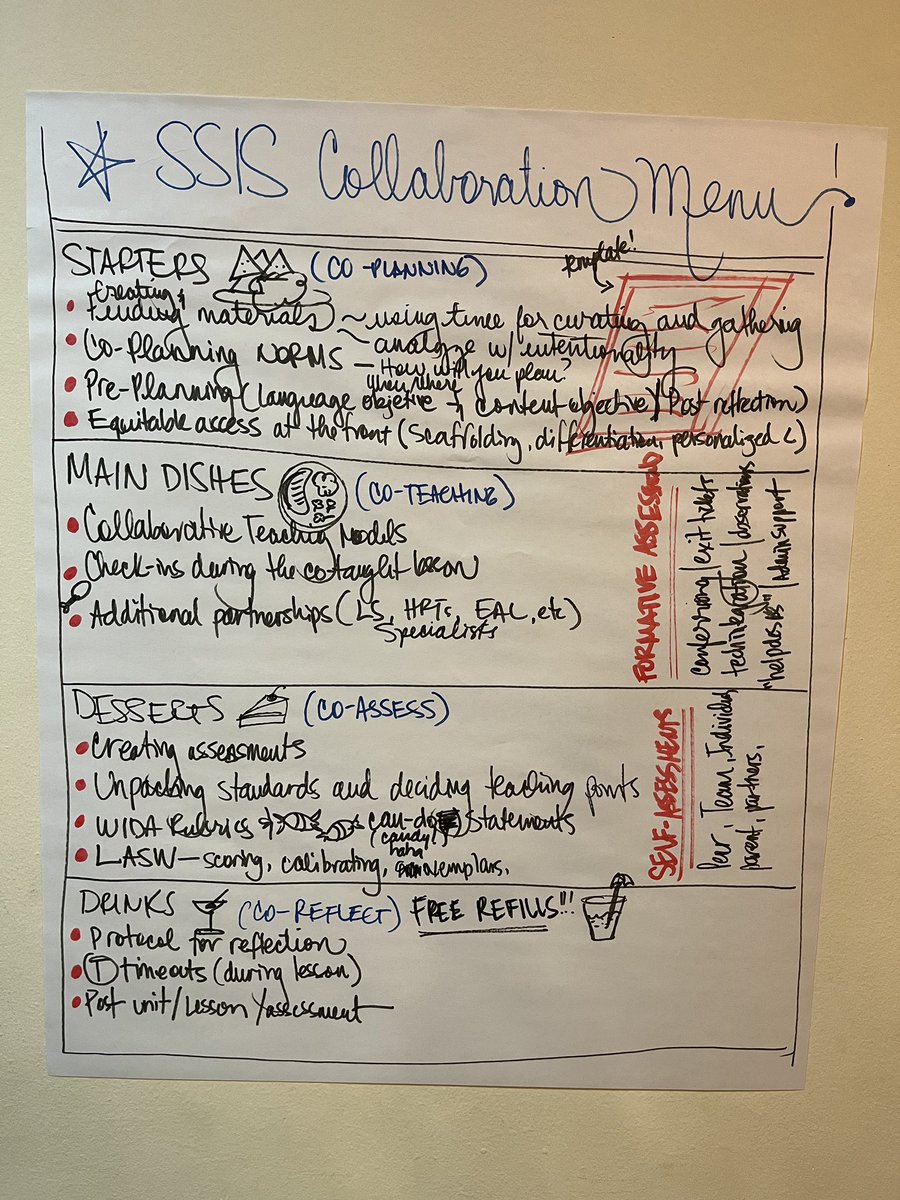 SSIS Collaboration Menu
STARTERS (CO-PLANNING)
template!
Creating &
finding materials ~ using time for curating and gathering
~ analyze w/ intentionality
Co-Planning NORMS — How will you plan?
when, where
Pre-Planning (Language objetive + content objective) (Post reflection)
Equitable access at the front (scaffolding, differentiation, personalized L)
MAIN DISHES (CO-TEACHING)
Collaborative Teaching Models
Check-ins during the cotaught lesson
Additional partnerships (LS, HRTs, EAL, etc)
Specialists
FORMATIVE ASSESSMENT
conferring/exit tickets
tech integration/observations
helpdesks /Admin support
DESSERTS (CO-ASSESS)
Creating assessments
Unpacking standards and deciding teaching points
WIDA Rubrics can-do statements
(candy)
haha
LASW — scoring, calibrating, exemplars.
SELF-ASSESSMENTS
Peer, Team, Individual
parent, partners,
DRINKS (CO-REFLECT) FREE REFILLS!!!
Protocol for reflection
T timeouts (during lesson)
Post unit/Lesson/assessment